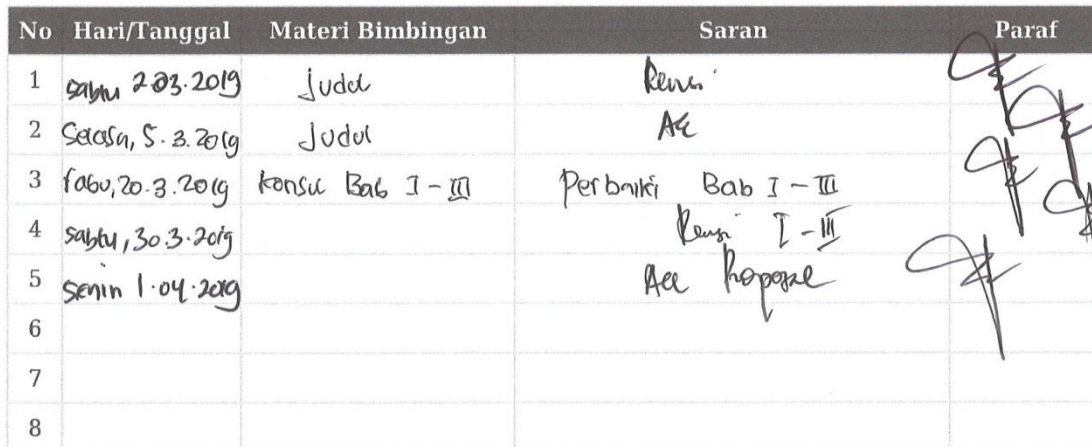 No Hari/Tanggal Materi Bimbingan Saran Paraf
1 Sabtu 2 03.2019 Judul Revisi
2 Selasa, 5.3.2019 Judul Acc
3 Rabu, 20.3.2019 Konsul Bab I - III Perbaiki Bab I - III
4 Sabtu, 30.3.2019 Revisi I - III
5 Senin 1.04.2019 Acc Proposal
6
7
8